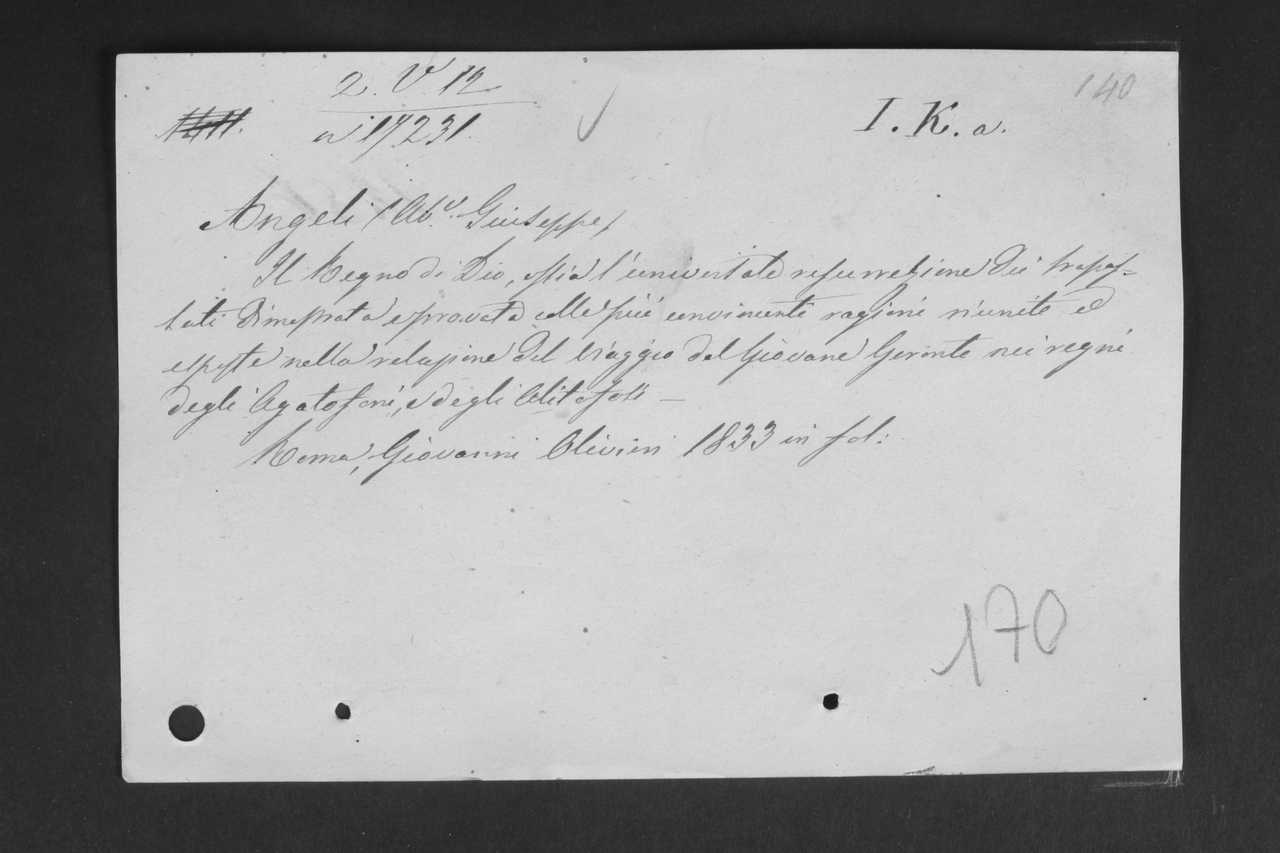 140
2. V 12
I. K. a.
n° 17231.
Angeli (Ab.e Giuseppe)
Il Regno di Dio, ossia l'universale resurrezione dei trapas-
sati dimostrata e provata colle più convincenti ragioni riunite ed
esposte nella relazione del viaggio del Giovane Geronte nei regni
degli Agatofani, e degli
Roma, Giovanni Olivieri 1833 in fol:
170